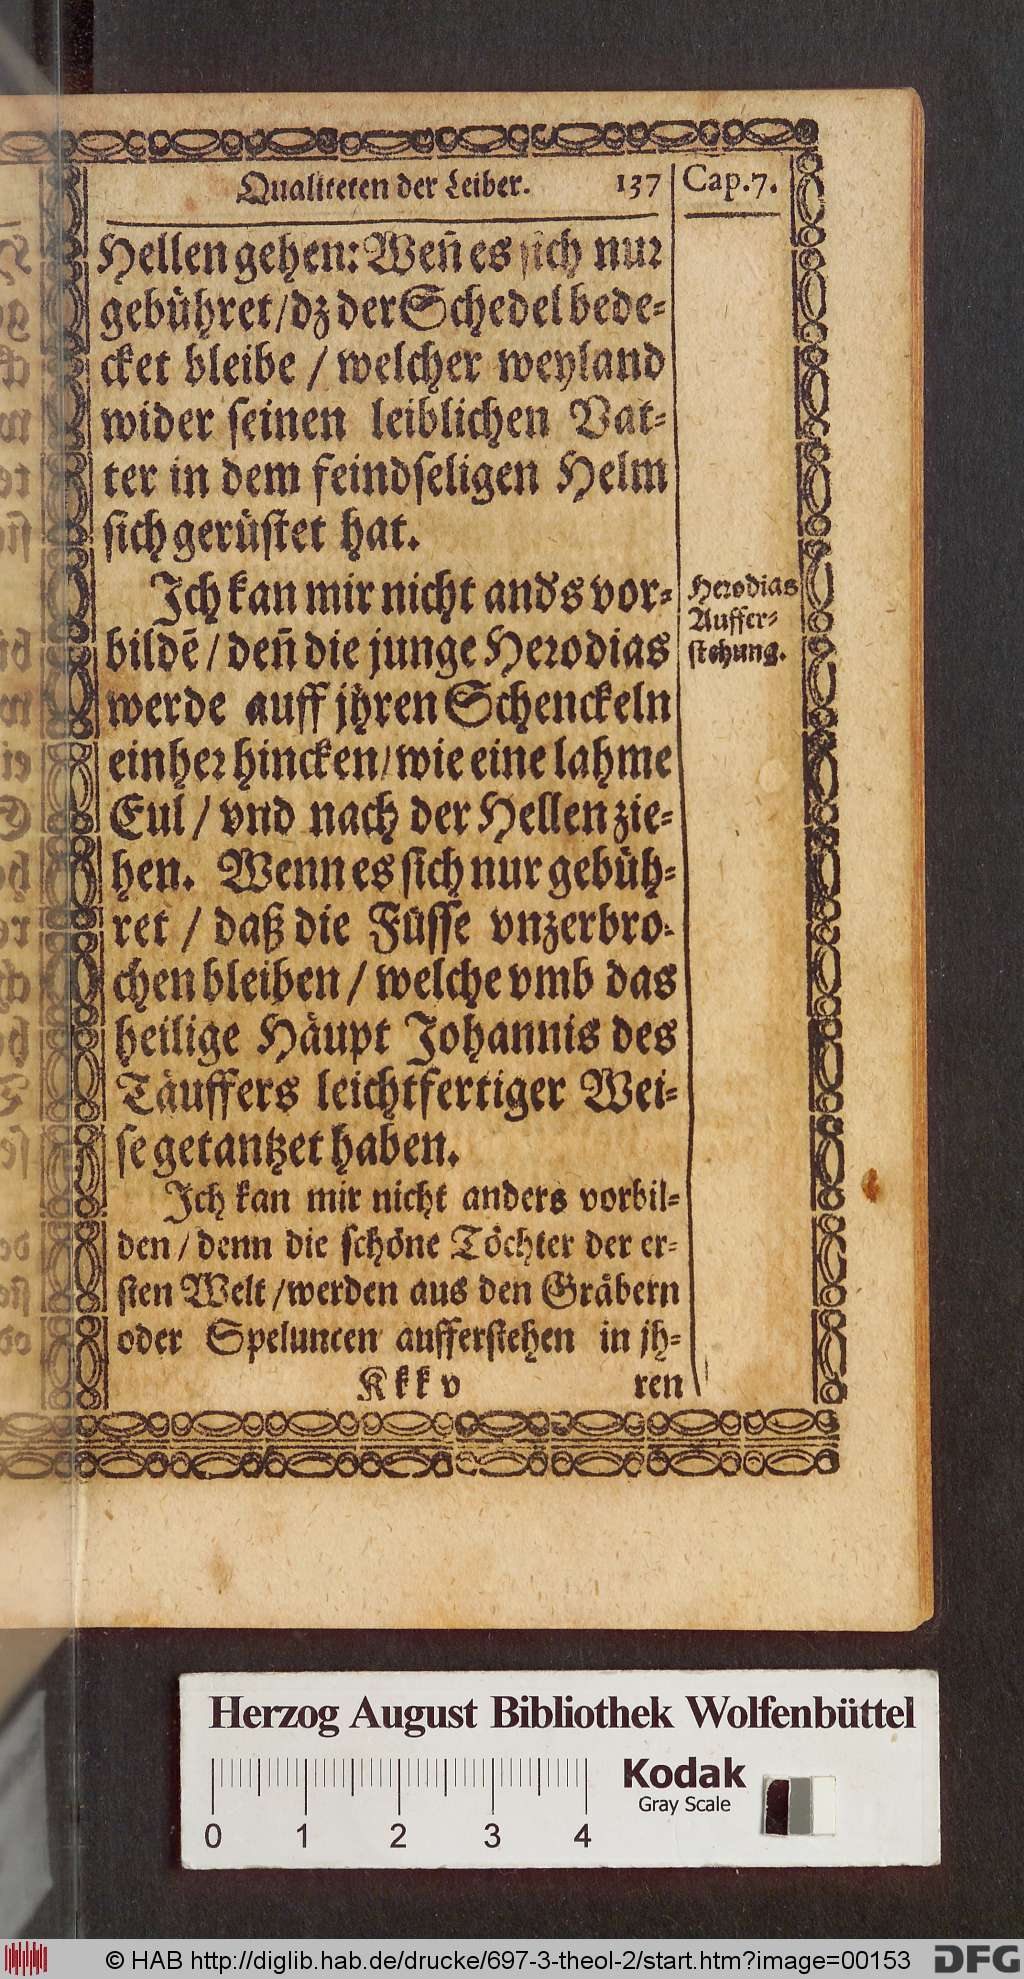 Qualiteten der Leiber. 137 Cap. 7.
Hellen gehen: Weñ es sich nur
gebühret / dz der Schedel bede-
cket bleibe / welcher weyland
wider seinen leiblichen Vat-
ter in dem feindseligen Helm
sich gerüstet hat.
Ich kan mir nicht and's vor-
bildē / deñ die junge Herodias
werde auff jhren Schenckeln
einher hincken / wie eine lahme
Eul / vnd nach der Hellen zie-
hen. Wenn es sich nur gebüh-
ret / daß die Füsse vnzerbro-
chen bleiben / welche vmb das
heilige Häupt Johannis des
Täuffers leichtfertiger Wei-
se getantzet haben.
Ich kan mir nicht anders vorbil-
den / denn die schöne Töchter der er-
sten Welt / werden aus den Gräbern
oder Speluncen aufferstehen in jh-
Kkk v ren
Herodias
Auffer-
stehung.
Herzog August Bibliothek Wolfenbüttel
Kodak
Gray Scale
0 1 2 3 4
© HAB http://diglib.hab.de/drucke/697-3-theol-2/start.htm?image=00153 DFG